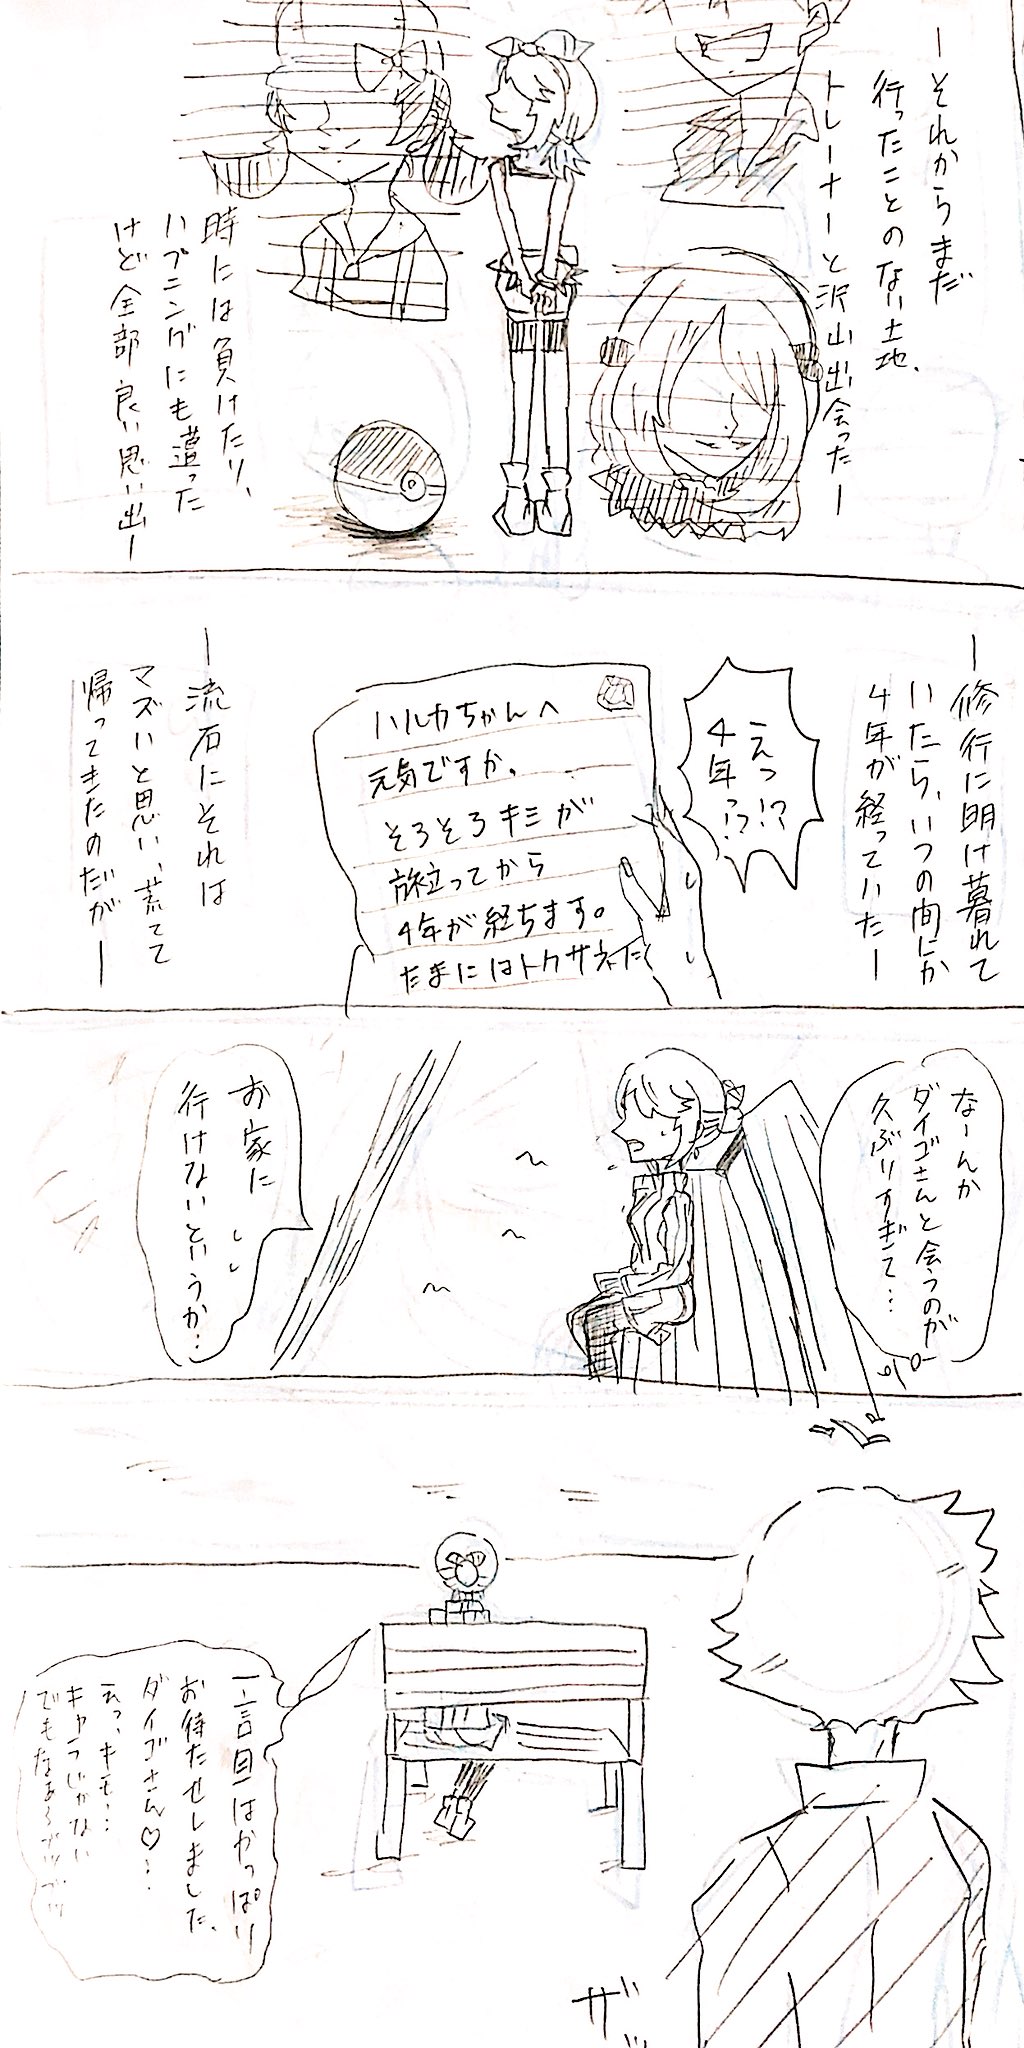 ーそれからまだ
行ったことのない土地、
トレーナーと沢山出会ったー
時には負けたり、
ハプニングにも遭った
けど全部良い思い出ー
ー修行に明け暮れて
いたら、いつの間にか
4年が経っていたー
えっ!?
4年!?
ハルカちゃんへ
元気ですか。
そろそろキミが
旅立ってから
4年が経ちます。
たまにはトクサネに
ー流石にそれは
マズいと思い、慌てて
帰ってきたのだがー
なーんか
ダイゴさんと会うのが
久ぶりすぎて…
お家に
行けないというか…
一言目はかっぱり
お待たせしました、
ダイゴさん♡…
えっ、キモ…
キャラじゃない
でもなぁ
ザッ